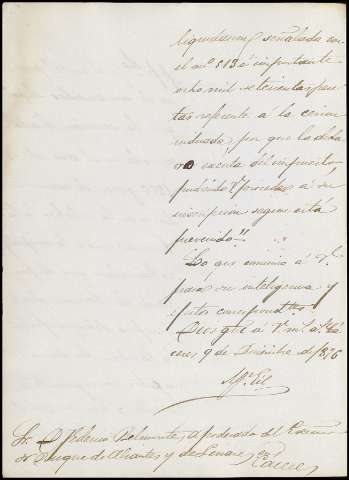 liquidacion señalada con
el nº 513 é importante
ocho mil setecientas pese
tas referente á la cesion
indicada, por que la decla
ro exenta del impuesto,
pudiendo V. proceder á su
inscripcion segun está
prevenido".
Lo que comunico á V.
para su inteligencia y
efectos correspondtes
Dios gue á V. m. a. Cá
ceres 9 de Diciembre de 1876
Sr. D. Federico Belmonte, Apoderado del Excmo
Sr. Duque de Abrantes y de Linares
Cáceres